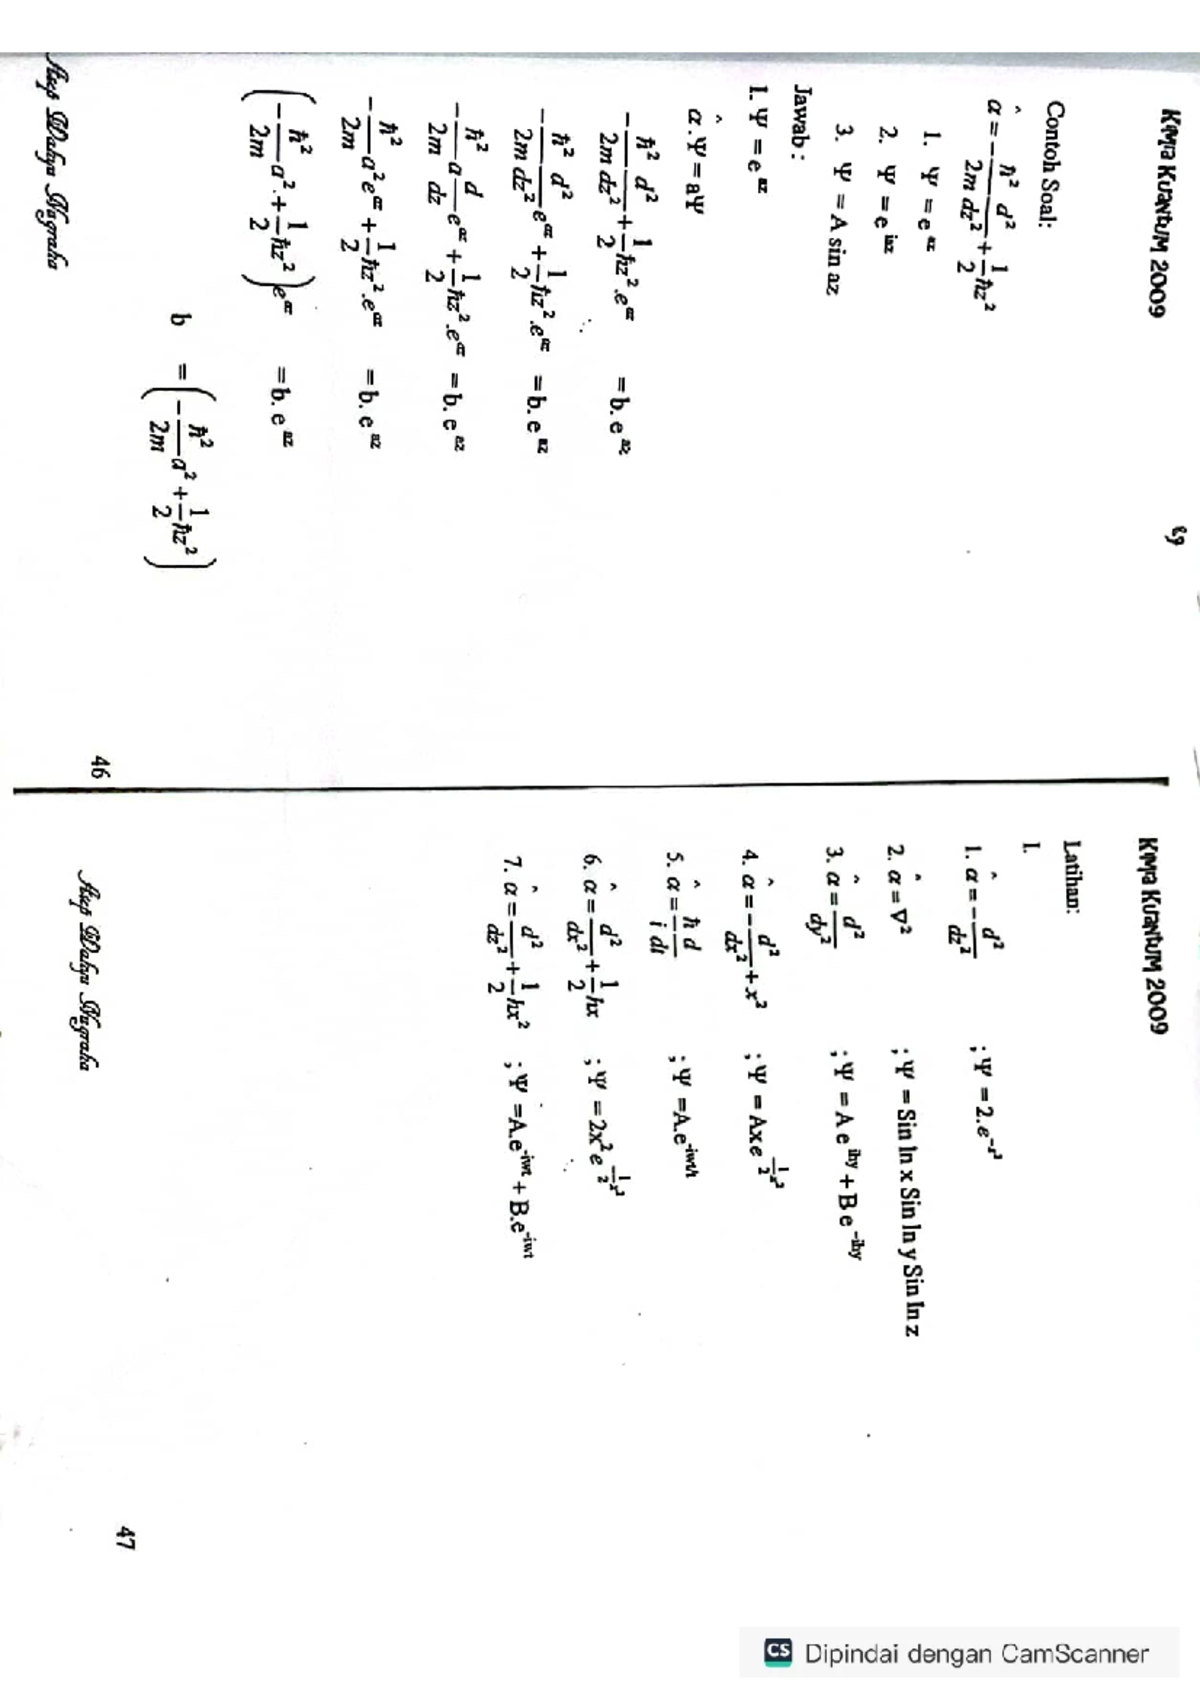 KIMIA KUANTUM 2009
Contoh Soal:
α̂ = -ℏ²/2m d²/dz² + 1/2 ℏz²
1. Ψ = e^az
2. Ψ = e^iaz
3. Ψ = A sin az
Jawab :
1. Ψ = e^az
α̂.Ψ = aΨ
-ℏ²/2m d²/dz² + 1/2 ℏz².e^az = b. e^az
-ℏ²/2m d²/dz² e^az + 1/2 ℏz².e^az = b. e^az
-ℏ²/2m a d/dz e^az + 1/2 ℏz².e^az = b. e^az
-ℏ²/2m a² e^az + 1/2 ℏz².e^az = b. e^az
(-ℏ²/2m a². + 1/2 ℏz²) e^az = b. e^az
b = (-ℏ²/2m a² + 1/2 ℏz²)
Asep Wahyu Nugraha
46
KIMIA KUANTUM 2009
Latihan:
1.
1. α̂ = -d²/dz² ; Ψ = 2.e^-x²
2. α̂ = ∇² ; Ψ = Sin ln x Sin ln y Sin ln z
3. α̂ = d²/dy² ; Ψ = A e^iby + B e^-iby
4. α̂ = -d²/dx² + x² ; Ψ = Axe^1/2 x²
5. α̂ = ℏ/i d/dt ; Ψ =A.e^-iwth
6. α̂ = d²/dx² + 1/2 hx ; Ψ = 2x² e^1/2 x²
7. α̂ = d²/dz² + 1/2 hx² ; Ψ =A.e^-iwt + B.e^-iwt
Asep Wahyu Nugraha
47
CS Dipindai dengan CamScanner